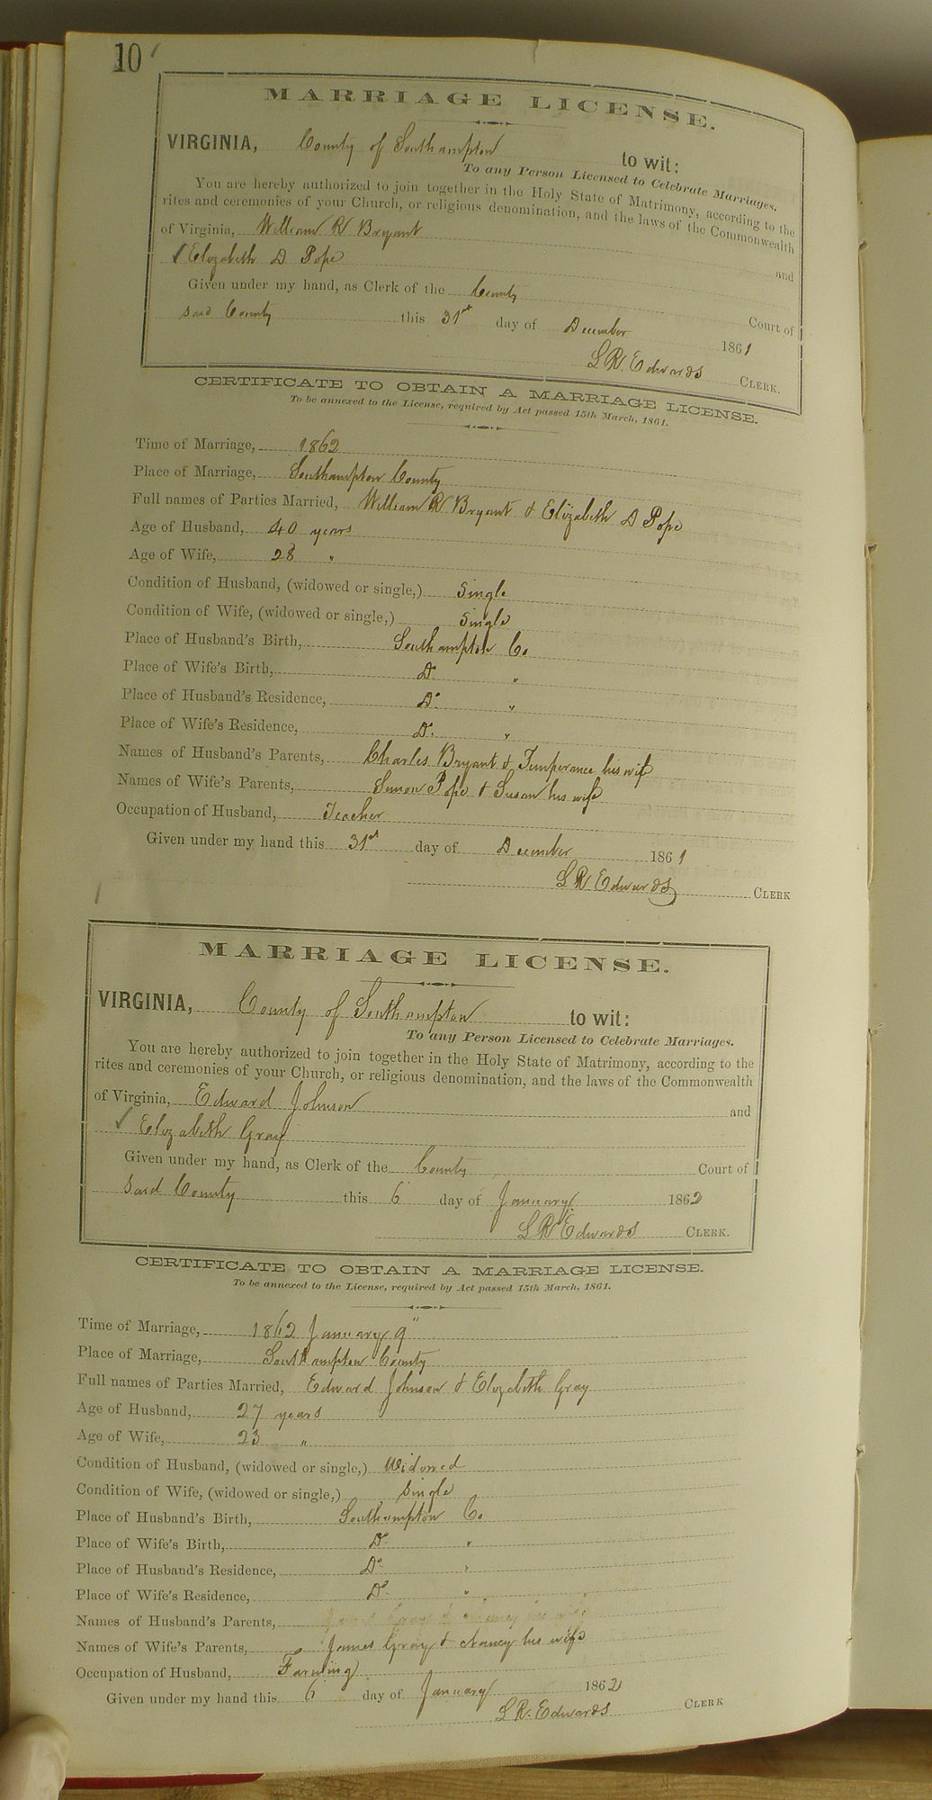 10
MARRIAGE LICENSE.
VIRGINIA, County of Southampton to wit:
To any Person Licensed to Celebrate Marriages.
You are hereby authorized to join together in the Holy State of Matrimony, according to the
rites and ceremonies of your Church, or religious denomination, and the laws of the Commonwealth
of Virginia, William R Bryant and
✓ Elizabeth D Pope
Given under my hand, as Clerk of the County Court of
said County this 31st day of December 1861
L R Edwards CLERK.
CERTIFICATE TO OBTAIN A MARRIAGE LICENSE.
To be annexed to the License, required by Act passed 15th March, 1861.
Time of Marriage, 1862
Place of Marriage, Southampton County
Full names of Parties Married, William R Bryant & Elizabeth D Pope
Age of Husband, 40 years
Age of Wife, 28 "
Condition of Husband, (widowed or single,) Single
Condition of Wife, (widowed or single,) Single
Place of Husband's Birth, Southampton Co.
Place of Wife's Birth, Do "
Place of Husband's Residence, Do "
Place of Wife's Residence, Do "
Names of Husband's Parents, Charles Bryant & Temperance his wife
Names of Wife's Parents, Simon Pope & Susan his wife
Occupation of Husband, Teacher
Given under my hand this 31st day of December 1861
L R Edwards CLERK
MARRIAGE LICENSE.
VIRGINIA, County of Southampton to wit:
To any Person Licensed to Celebrate Marriages.
You are hereby authorized to join together in the Holy State of Matrimony, according to the
rites and ceremonies of your Church, or religious denomination, and the laws of the Commonwealth
of Virginia, Edward Johnson and
✓ Elizabeth Gray
Given under my hand, as Clerk of the County Court of
said County this 6 day of January 1862
L R Edwards CLERK.
CERTIFICATE TO OBTAIN A MARRIAGE LICENSE.
To be annexed to the License, required by Act passed 15th March, 1861.
Time of Marriage, 1862 January 9"
Place of Marriage, Southampton County
Full names of Parties Married, Edward Johnson & Elizabeth Gray
Age of Husband, 27 years
Age of Wife, 23 "
Condition of Husband, (widowed or single,) Widowed
Condition of Wife, (widowed or single,) Single
Place of Husband's Birth, Southampton Co.
Place of Wife's Birth, Do "
Place of Husband's Residence, Do "
Place of Wife's Residence, Do "
Names of Husband's Parents,
Names of Wife's Parents, James Gray & Nancy his wife
Occupation of Husband, Farming
Given under my hand this 6 day of January 1862
L R. Edwards CLERK